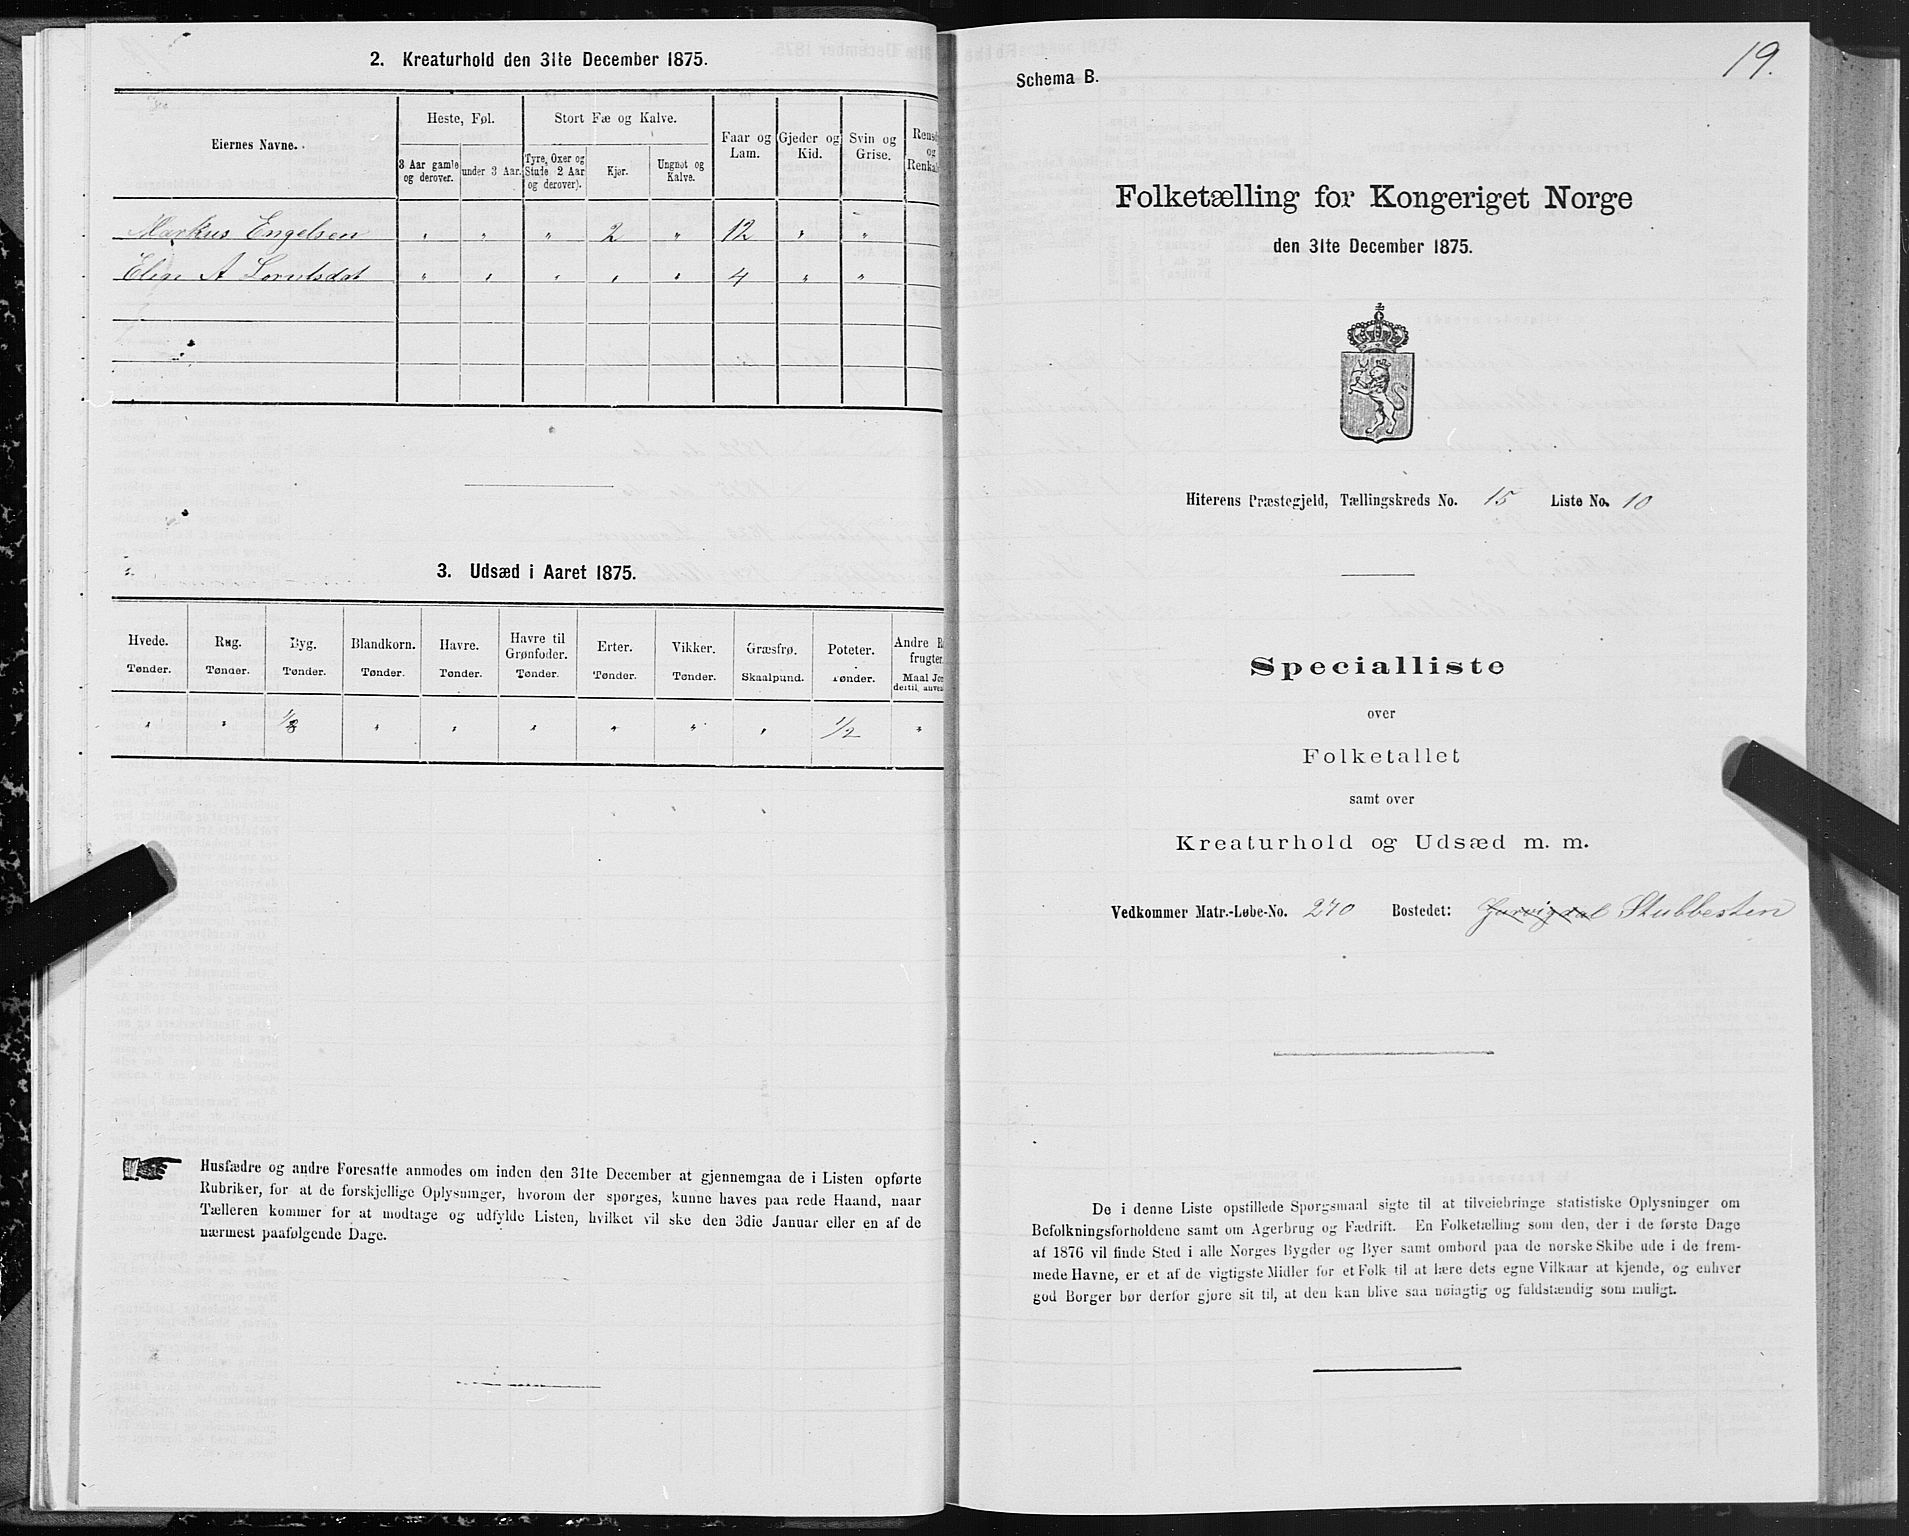 2. Kreaturhold den 31te December 1875.
Eiernes Navne.
Heste, Føl.
Stort Fæ og Kalve.
Faar og Lam.
Gjeder og Kid.
Svin og Grise.
Rensd
og
Renkal
3 Aar gamle og derover.
under 3 Aar.
Tyre, Oxer og Stude 2 Aar og derover).
Kjør.
Ungnøt og Kalve.
Markus Engelsen " " " 2 " 12 " "
Elen A " " " " " 4 " "
3. Udsæd i Aaret 1875.
Hvede. Rug. Byg. Blandkorn. Havre. Havre til Grønfoder. Erter. Vikker. Græsfrø. Poteter. Andre R
frugter
Tønder. Tønder. Tønder. Tønder. Tønder. Tønder. Tønder. Tønder. Skaalpund. Tønder. Maal Jor
dertil anven
" " 1/8 " " " " " " 1/2 "
Husfædre og andre Foresatte anmodes om inden den 31te December at gjennemgaa de i Listen opførte
Rubriker, for at de forskjellige Oplysninger, hvorom der spørges, kunne haves paa rede Haand, naar
Tælleren kommer for at modtage og udfylde Listen, hvilket vil ske den 3die Januar eller en af de
nærmest paafølgende Dage.
19.
Schema B.
Folketælling for Kongeriget Norge
den 31te December 1875.
Hiterens Præstegjeld, Tællingskreds No. 15 Liste No. 10
Specialliste
over
Folketallet
samt over
Kreaturhold og Udsæd m. m.
Vedkommer Matr.-Løbe-No. 270 Bostedet: Stubbesten
De i denne Liste opstillede Spørgsmaal sigte til at tilveiebringe statistiske Oplysninger om
Befolkningsforholdene samt om Agerbrug og Fædrift. En Folketælling som den, der i de første Dage
af 1876 vil finde Sted i alle Norges Bygder og Byer samt ombord paa de norske Skibe ude i de frem-
mede Havne, er et af de vigtigste Midler for et Folk til at lære dets egne Vilkaar at kjende, og enhver
god Borger bør derfor gjøre sit til, at den kan blive saa nøiagtig og fuldstændig som muligt.